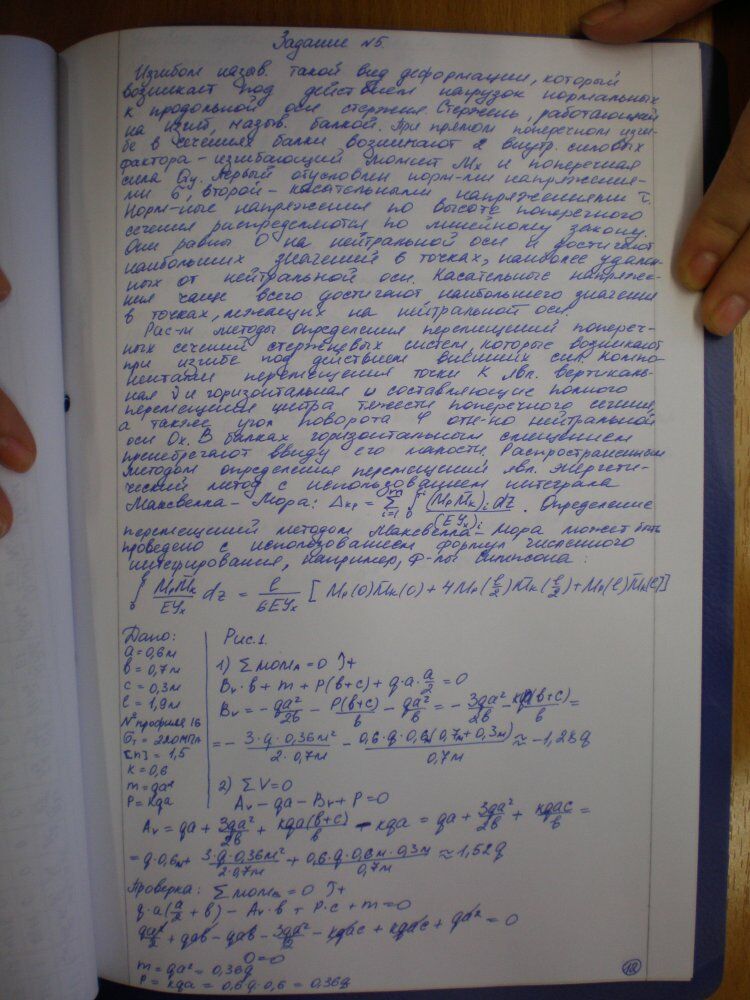 Задание №5.
Изгибом назыв. такой вид деформации, который
возникает под действием нагрузок нормальных
к продольной оси стержня. Стержень, работающий
на изгиб, назыв. балкой. При прямом поперечном изги-
бе в сечениях балки возникают 2 внутр. силовых
фактора - изгибающий момент Mx и поперечная
сила Qy. Первый отусловлен норм-ми напряжения-
ми σ, второй - касательными напряжениями τ.
Норм-ные напряжения по высоте поперечного
сечения распределяются по линейному закону.
Они равны 0 на нейтральной оси и достигают
наибольших значений в точках, наиболее удален-
ных от нейтральной оси. Касательные напряже-
ния чаще всего достигают наибольшего значения
в точках, лежащих на нейтральной оси.
Рас-м методы определения перемещений попереч-
ных сечений стержневых систем, которые возникают
при изгибе под действием внешних сил. Компо-
нентами перемещения точки К явл. вертикаль-
ная υ и горизонтальная u составляющие полного
перемещения центра тяжести поперечного сечения,
а также угол поворота φ отн-но нейтральной
оси Ox. В балках горизонтальным смещением
пренебрегают ввиду его малости. Распространенным
методом определения перемещений явл. энергети-
ческий метод с использованием интеграла
Максвелла - Мора: Δкр = Σ ∫ (MpM̄к)i dz / (EYx)i . Определение
перемещений методом Максвелла - Мора может быть
проведено с использованием формул численного
интегрирования, например, ф-лы Симпсона:
∫ MpM̄к/EYx dz = l/6EYx [Mp(0)M̄к(0) + 4Mp(l/2)M̄к(l/2) + Mp(l)M̄к(l)]
Дано:
a = 0,6м
b = 0,7м
c = 0,3м
l = 1,9м
№ профиля 16
σт = 220МПа
[n] = 1,5
k = 0,6
m = qa²
P = kqa
Рис.1.
1) Σ момA = 0
Bv·b + m + P(b+c) + q·a·a/2 = 0
Bv = - qa²/2b - P(b+c)/b - qa²/b = - 3qa²/2b - kqa(b+c)/b =
= - 3·q·0,36м²/2·0,7м - 0,6·q·0,6м(0,7м+0,3м)/0,7м ≈ -1,28q
2) ΣV=0
Av - qa - Bv + P = 0
Av = qa + 3qa²/2b + kqa(b+c)/b - kqa = qa + 3qa²/2b + kqac/b =
= q·0,6м + 3·q·0,36м²/2·0,7м + 0,6·q·0,6м·0,3м/0,7м ≈ 1,52q
Проверка: Σ момB = 0
q·a(a/2 + b) - Av·b + P·c + m = 0
qa²/2 + qab - qab - 3qa²/2 - kqac + kqac + qa² = 0
0=0
m = qa² = 0,36q
P = kqa = 0,6q·0,6 = 0,36q
12